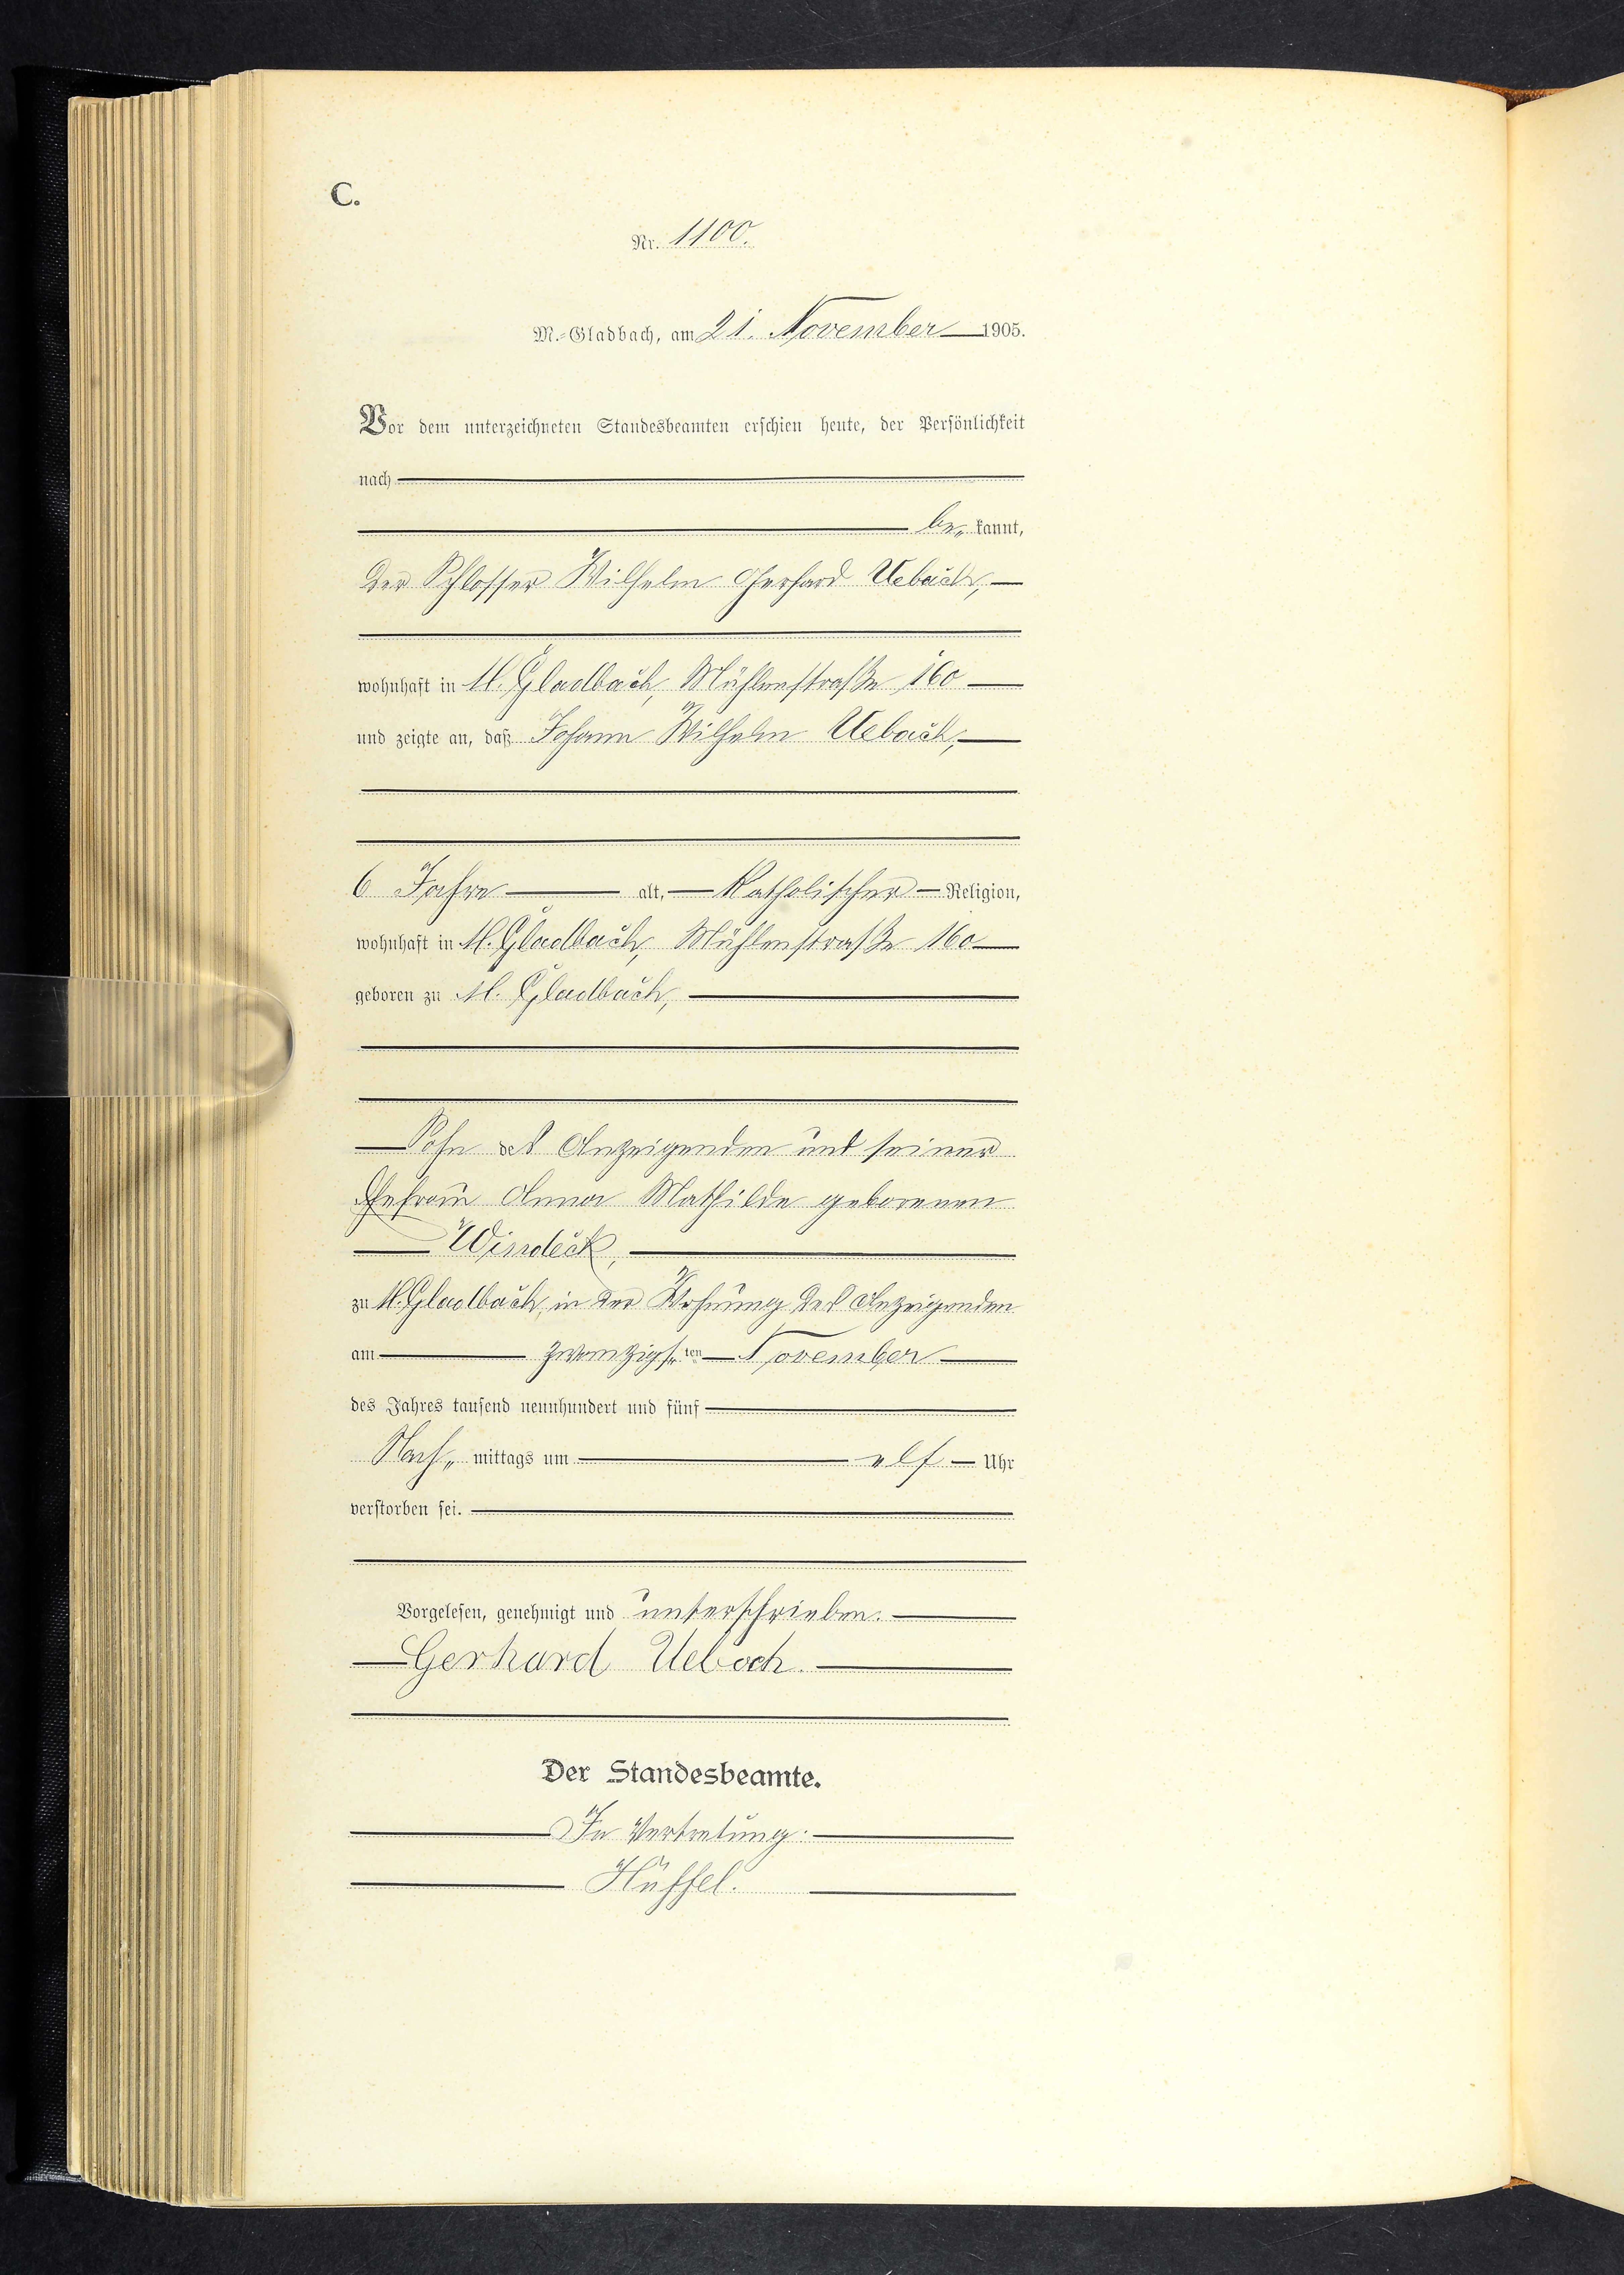 C.
Nr. 1100.
M.-Gladbach, am 21. November 1905.
Vor dem unterzeichneten Standesbeamten erschien heute, der Persönlichkeit
nach
be„ kannt,
der Schlosser Wilhelm Gerhard Uebach,
wohnhaft in M. Gladbach, Mühlenstraße 160
und zeigte an, daß Johann Wilhelm Uebach,
6 Jahre alt, Katholischer Religion,
wohnhaft in M. Gladbach, Mühlenstraße 160
geboren zu M. Gladbach,
Sohn des Anzeigenden und seiner
Ehefrau Anna Mathilde geborenen
Windeck,
zu M. Gladbach, in der Wohnung des Anzeigenden
am zwanzigs„ ten November
des Jahres tausend neunhundert und fünf
Nach„ mittags um elf Uhr
verstorben sei.
Vorgelesen, genehmigt und unterschrieben.
Gerhard Uebach.
Der Standesbeamte.
In Vertretung:
Hüffel.